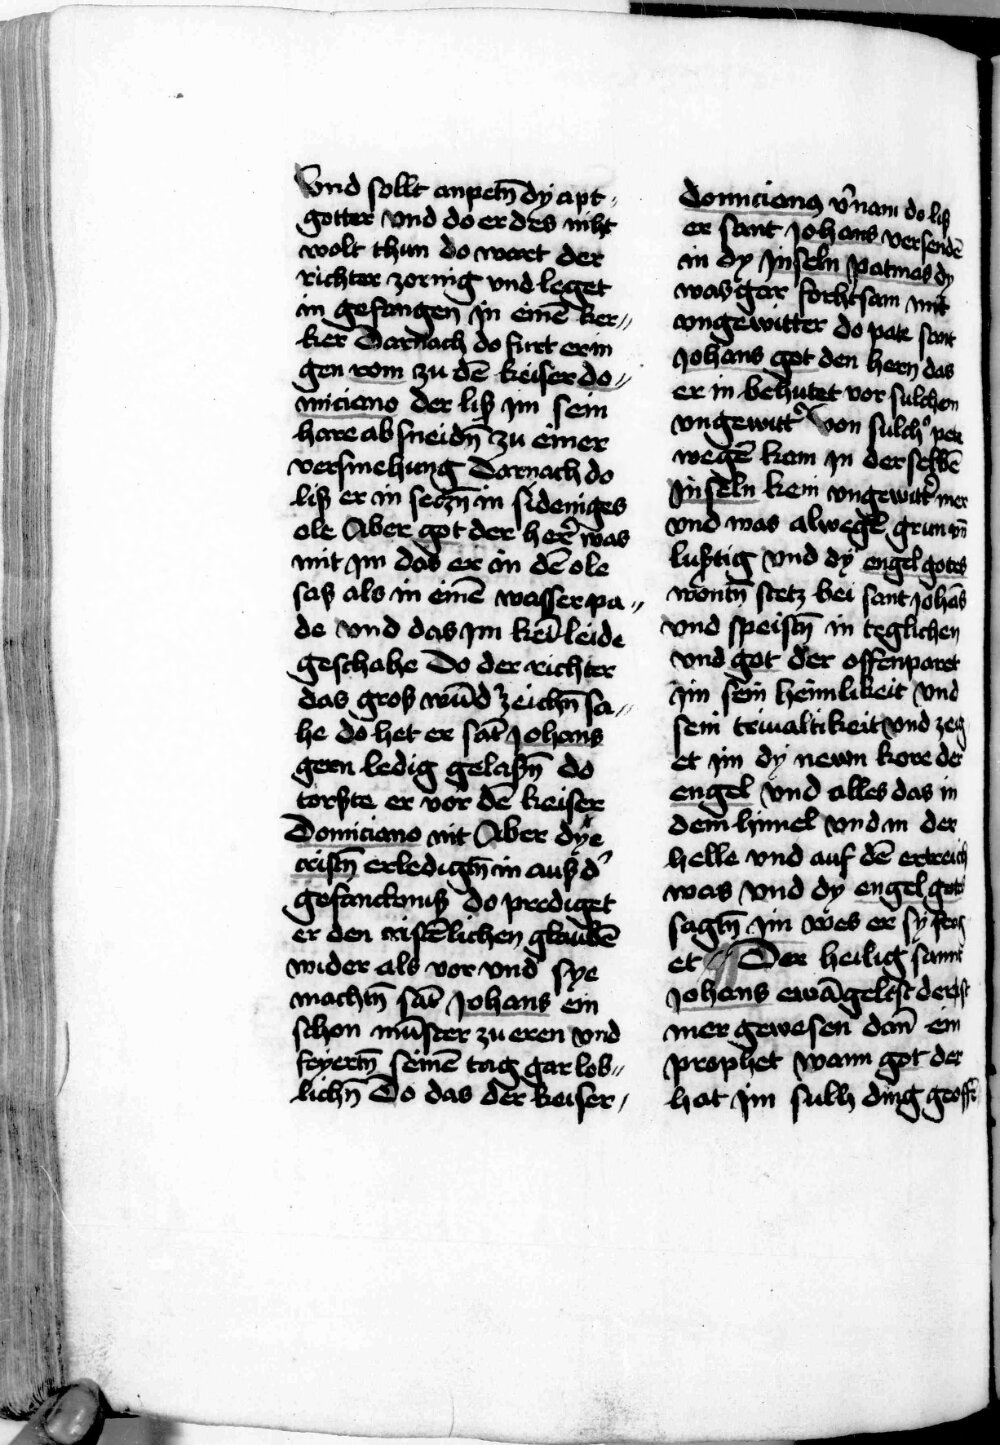 Vnd sollt anpetn̄ dy apt⸗
gotter vnd do er des niht
wolt thun do wart der
richter zornig vnd leget
in gefangen in eine͂ ker⸗
ker Darnach do furt er in
gen rom zu de͂ keiser do⸗
miciano der liß jm sein
hare ab sneidn̄ zu einer
versmehung Darnach do
liß er in seczn̄ in sideniges
ole Aber got der her̄ was
mit jm das er in de͂ ole
saß als in eine͂ wasser pa⸗
de vnd das jm kei͂ leide
geschahe Do der richter
das groß wūd᾽zeichn̄ sa⸗
he do het er sāt johans
gern ledig gelaßn̄ do
torste er vor de͂ keiser
Domiciano nit Aber dye
cristn̄ erledigtn̄ in auß d᾽
gefancknuß do prediget
er den cristēlichen glaube͂
wider als vor vnd sye
machtn̄ sāt johans ein
schon mūnster zu eren vnd
feyertn̄ seine͂ tag gar lob⸗
lichn̄ Do das der keiser
Domicianus v᾽nam do liß
er sant johans versende͂
in dy jnseln patmas dy
was gar forhtsam mit
vngewitter do pate sant
johans got den hern das
er in behutet vor sulchen
vngewitt᾽ Von sulch᾽ pet
wege͂ kam in der selbe͂
jnseln kein vngewitt᾽ mer
vnd was alwegē grun vn̄
lustig vnd dy engel gotes
wontn̄ stetz bei sant johās
vnd speistn̄ in teglichen
vnd got der offenparet
jm sein heimlikeit vnd
sein triualtikeit vnd zeig
et jm dy newn kore der
engel vnd alles das in
dem himel vnd in der
helle vnd auf de͂ ertreich
was vnd dy engel gots
sagtn̄ jm wes er sy frag
et Der heilig sannt
johans ewāgelist der ist
mer gewesen dan̄ ein
prophet wann got der
hat jm sulh ding geoff